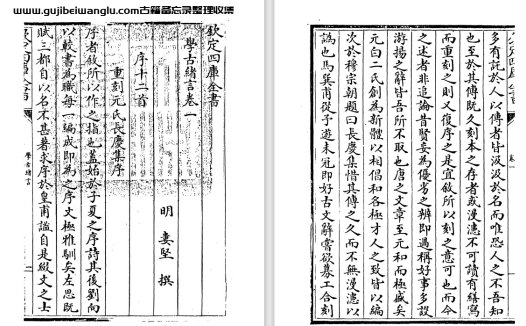 www.gujibeiwanglu.com古籍备忘录整理收集
欽定四庫全書
學古緒言卷一
明 婁堅 撰
序十二首
重刻元氏長慶集序
序者敘所以作之指也蓋始於子夏之序詩其後劉向
以較書為職每一編成即為之序文極雅馴矣左思既
賦三都自以名不甚著求序於皇甫謐自是綴文之士
學古緒言
多有託於人以傳者皆汲汲於名而唯恐人之不吾知
也至於其傳既久刻本之存者或漫漶不可讀有繕寫
而重刻之則又復序之是宜敘所以刻之意可也而今
之述者非追論昔賢妄為優劣之辨即過稱好事多設
游揚之辭皆吾所不取也唐之文章至元和而極盛矣
元白二氏創為新體以相倡和各極才人之致皆以編
次於穆宗朝題曰長慶集惜其傳之久而不無漫漶以
譌也馬巽甫從予遊未冠即好古文辭嘗欲募工合刻